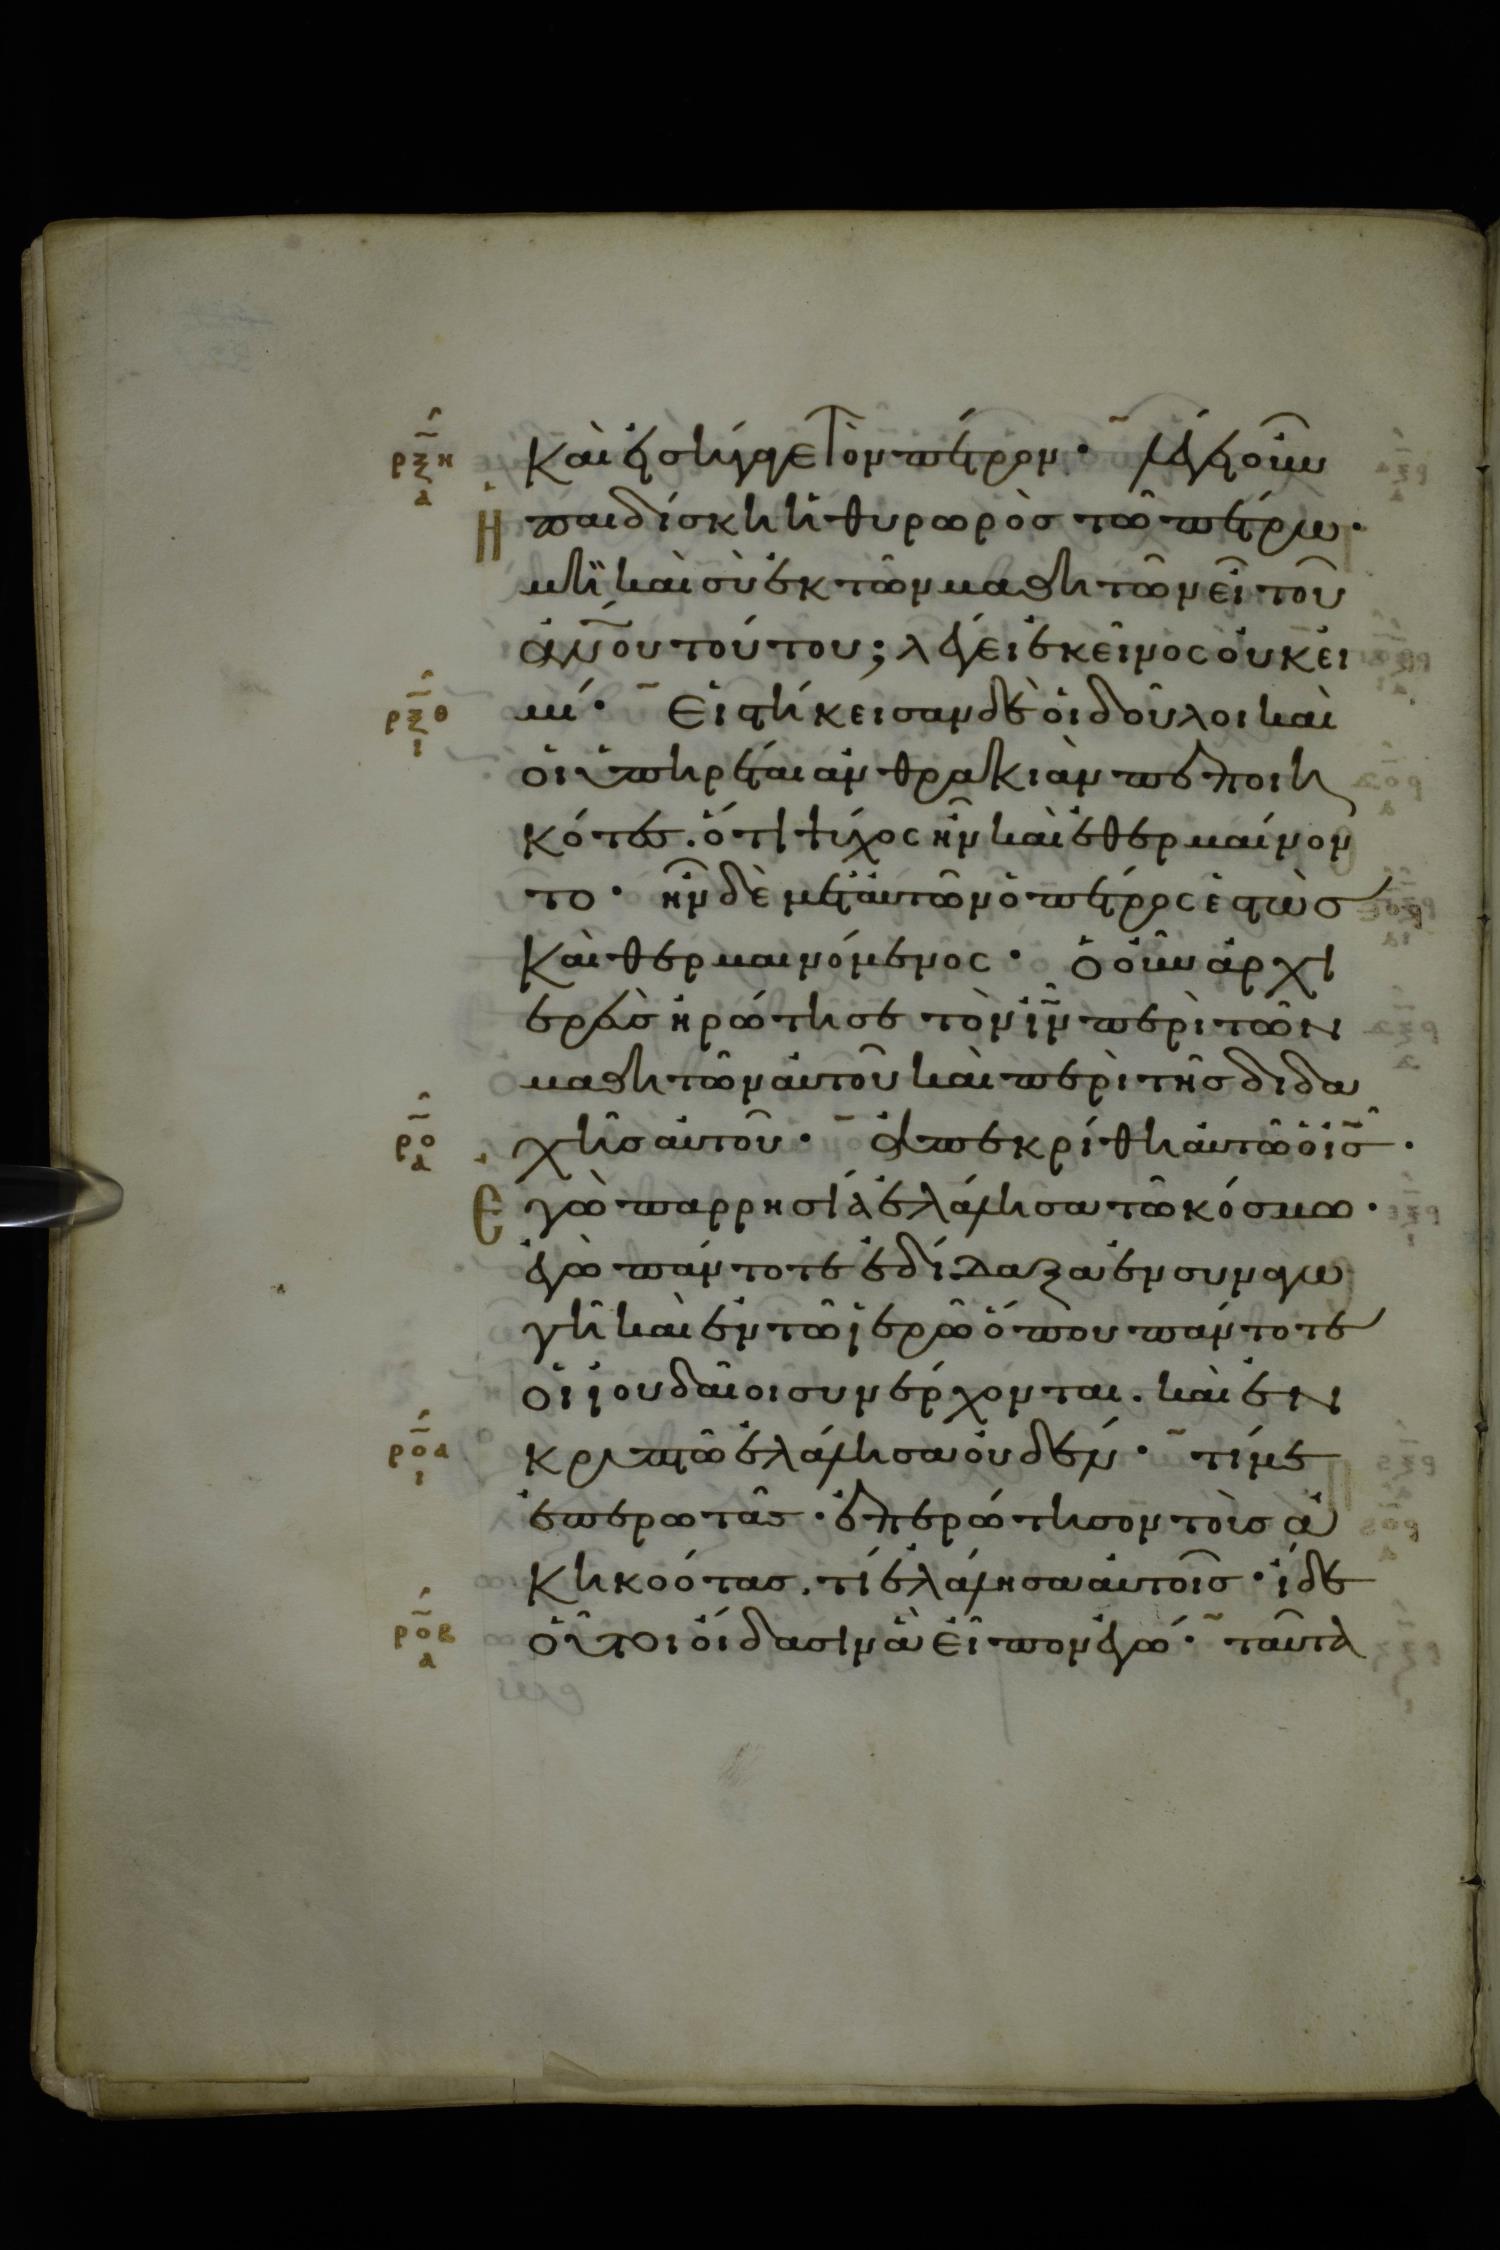 ρξη
α
καὶ εἰσήγαγε τὸν πέτρον· λέγει οὖν
Η παιδίσκη ἡ θυρωρὸσ τῶ πέτρω·
μὴ καὶ σὺ ἐκ τῶν μαθητῶν εἶ τοῦ
ἀνου τούτου; λέγει ἐκεῖνος οὐκ εἰ
ρξθ
ι
μί· Εἱστήκεισαν δὲ οἱ δοῦλοι καὶ
οἱ ὑπηρέται ἀνθρακιὰν πεποιη
κότες. ὅτι ψύχος ἦν καὶ ἐθερμαίνον
το· ἦν δὲ μετ αὐτῶν ὁ πέτρος ἑστὼσ
καὶ θερμαινόμενος· ὁ οὖν ἀρχι
ερεὺσ ἠρώτησε τὸν ἰν περὶ τῶν
μαθητῶν αὐτοῦ καὶ περὶ τῆσ διδα
ρο
α
χῆσ αὐτοῦ· ἀπεκρίθη αὐτῶ ὁ ισ·
Ε γὼ παρρησία ἐλάλησα τῶ κόσμω·
ἐγὼ πάντοτε ἐδίδαξα ἐν συναγω
γῆ καὶ ἐν τῶ ἱερῶ ὅπου πάντοτε
οἱ ἰουδαῖοι συνέρχονται. καὶ ἐν
ροα
ι
κρυπτῶ ἐλάλησα οὐδέν· τί με
ἐπερωτᾶς· ἐπερώτησον τοὺσ ἀ
κηκοότασ. τί ἐλάλησα αὐτοῖσ· ἴδε
ροβ
α
οὗτοι οἴδασιν ἃ εἶπον ἐγώ· ταῦτα